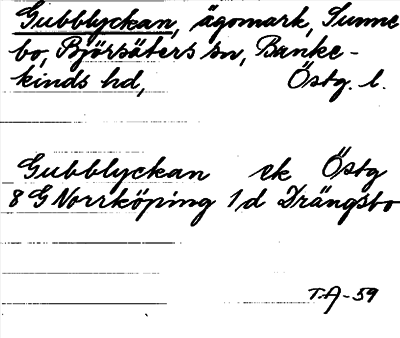 Gubblyckan, ägomark, Sunne
bo, Björsäters sn, Banke-
kinds hd, Östg. l.
Gubblyckan ek Östg
8 G Norrköping 1 d Drängsbo
T.A-59